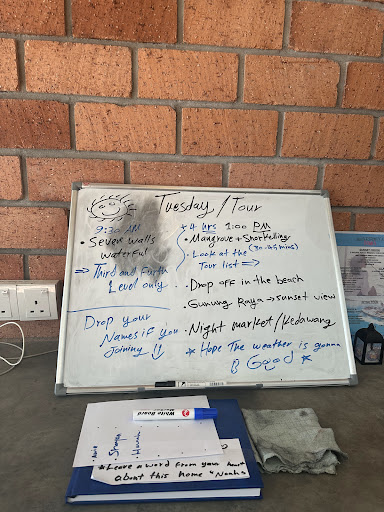 Tuesday / Tour
9:30 AM
• Seven walls
waterful
⇒ Third and Furth
Level only
Drop your
Names if you
Joining !!
* 4 hrs 1:00 PM
• Mangrove + Snorkelling
(30-45 mins)
• Look at the
Tour list ⇒
• Drop off in the beach
• Gunung Raya → sunset view
• Night market / Kedawang
* Hope The weather is gonna
B Good *
White Board
• Sharon
• Hannah
* Leave a word from your heart
about this home "Noah"